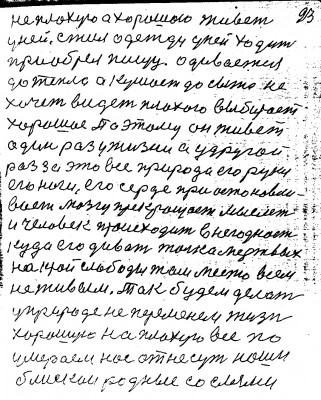 не плохую а хорошого живет 93
у ней, сшил одежду у ней ходит
приобрел пищу. одевается
до тепла а кушает до сыта не
хочит видет плохого выбирает
хорошае Поэтому он живет
один раз у жизни а удругой
раз за это все природа его руки
его ноги, его серце приостоновли-
вает мозгу прекращает мыслет
и человек происходит в негодность
куда его диват точка мертвых
на край слободы там место всем
не живым. Так будем делат
у природе не переменем жизн
хорошую на плохую все по
умераем нас отнесут наши
близкаи родные со слязми